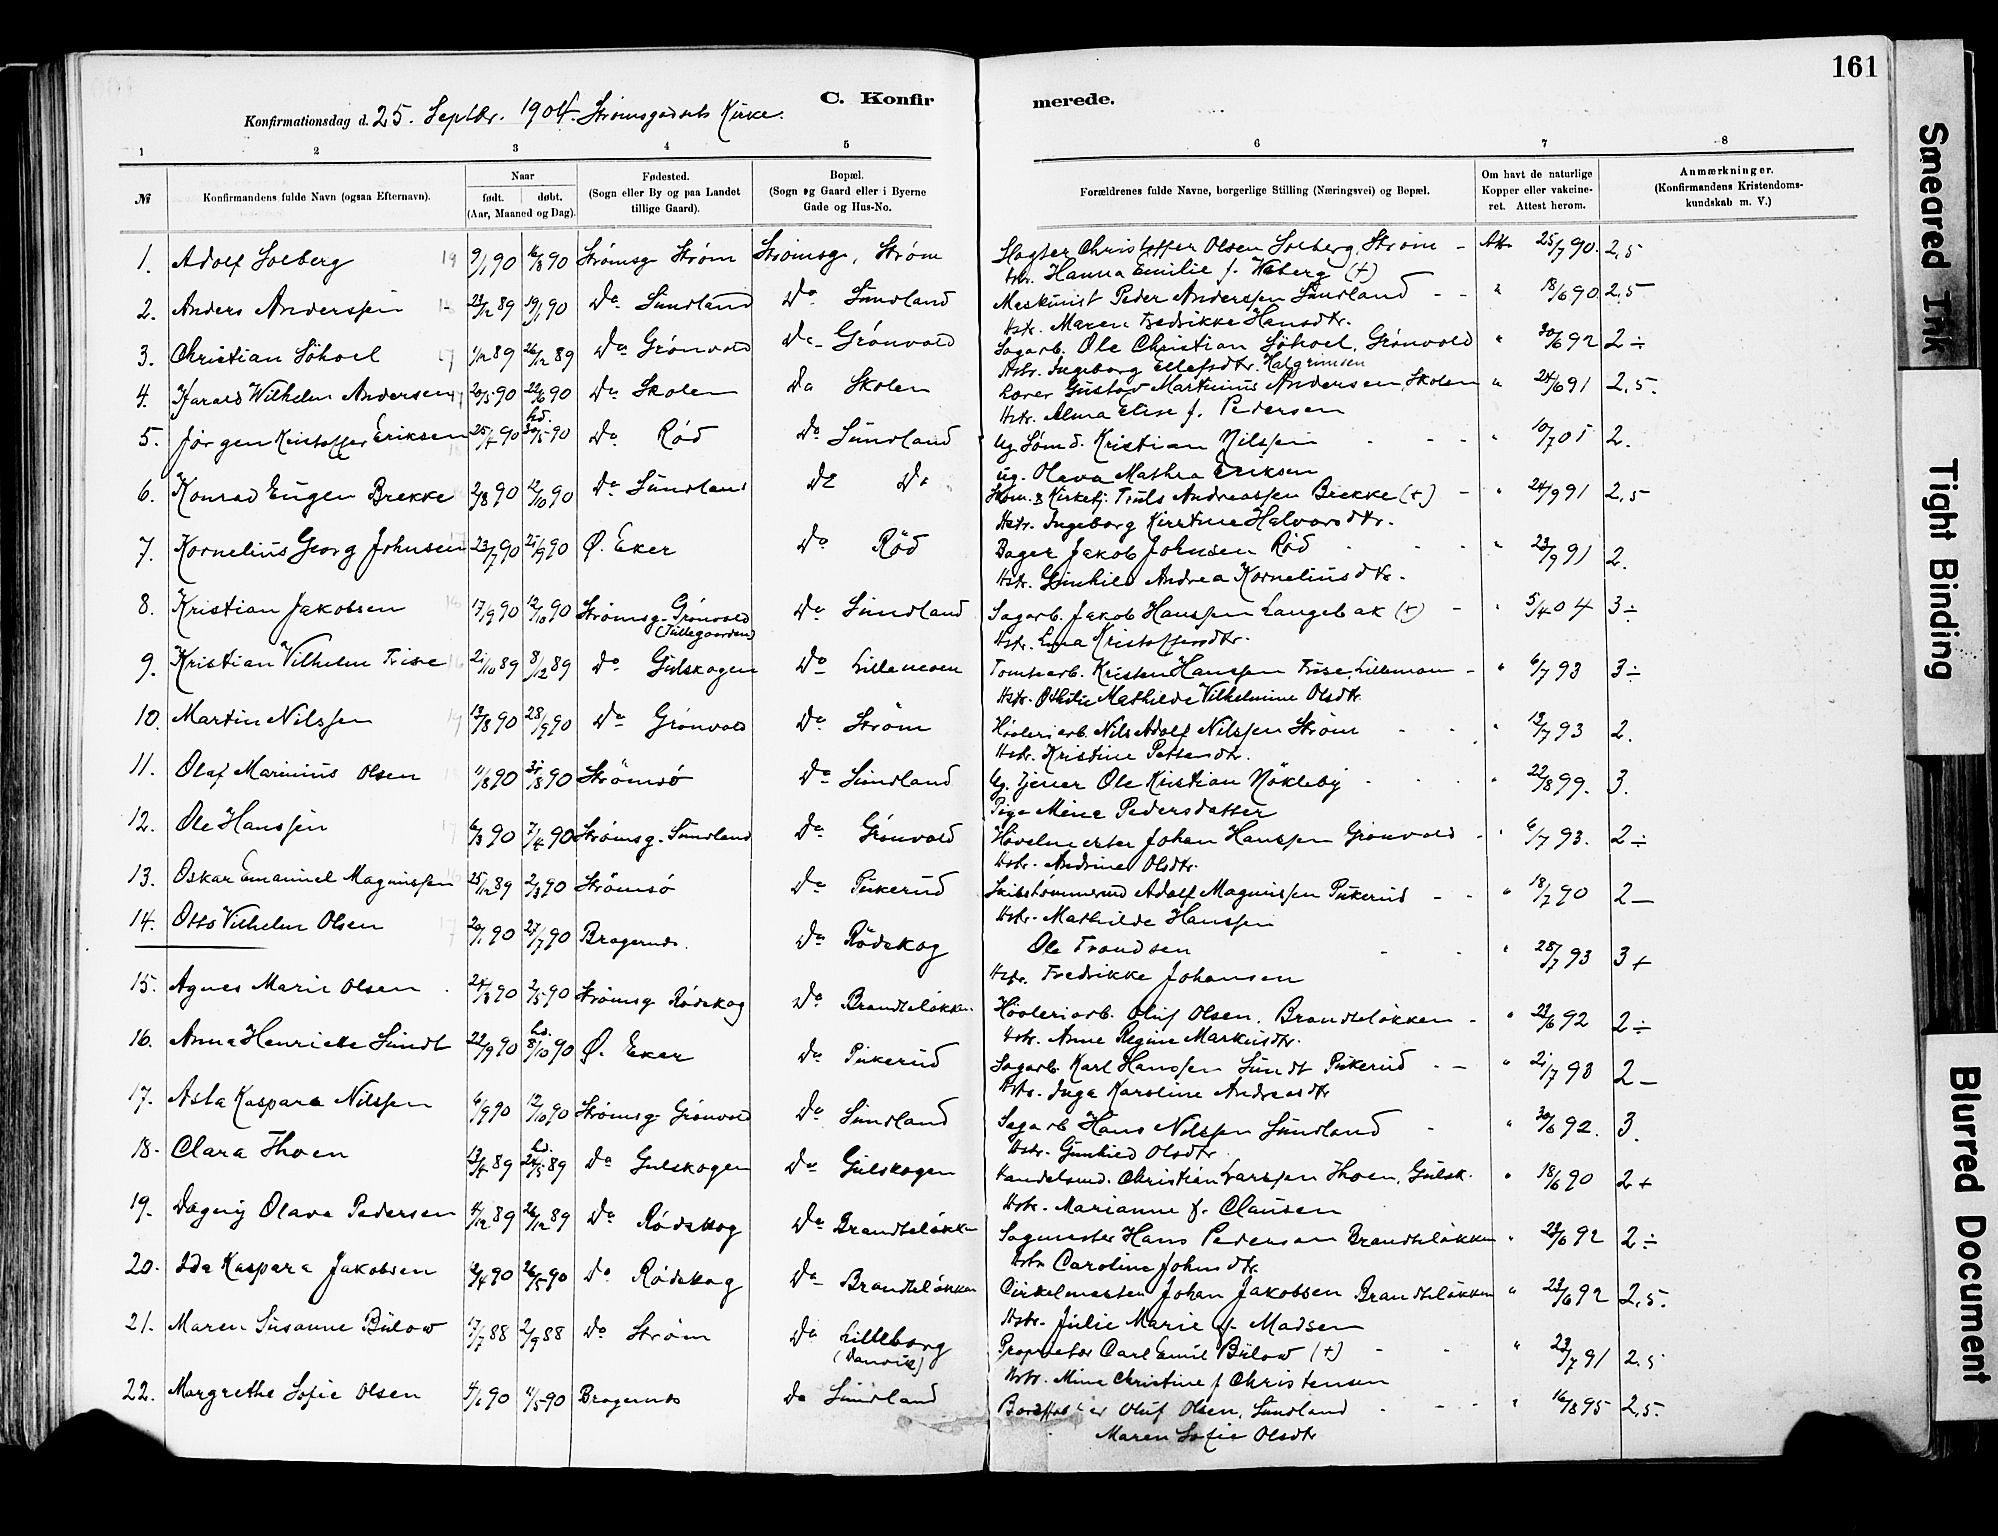 161
C. Konfirmerede.
Konfirmationsdag d. 25. Septbr. 1904. Strømsgodsets Kirke.
1 2 3 4 5 6 7 8
№ Konfirmandens fulde Navn (ogsaa Efternavn). Naar født. døbt. (Aar, Maaned og Dag). Fødested. (Sogn eller By og paa Landet tillige Gaard). Bopæl. (Sogn og Gaard eller i Byerne Gade og Hus-No. Forældrenes fulde Navne, borgerlige Stilling (Næringsvei) og Bopæl. Om havt de naturlige Kopper eller vakcineret. Attest herom. Anmærkninger. (Konfirmandens Kristendomskundskab m. V.)
1. Adolf Solberg 9/1 90 16/3 90 Strømsg. Strøm Strømsg. Strøm Slagter Christoffer Olsen Solberg, Strøm - Att. 25/7 90. 2,5
Hstr. Hanna Emilie f. Waberg (+)
2. Anders Anderssen 23/12 89 19/1 90 Do Sundland Do Sundland Maskinist Peder Anderssen Sundland - - " 18/6 90 2,5
Hstr. Maren Fredrikke Hansdtr.
3. Christian Söhoel 1/12 89 26/12 89 Do Grönvold Do Grönvold Sagarb. Ole Christian Söhoel, Grönvold " 30/6 92 2 ÷
Hstr. Ingeborg Ellefsdtr. Halgrimsen
4. Harald Wilhelm Andersen 20/5 90 22/6 90 Do Skolen Do Skolen Lærer Gustav Martinius Andersen, Skolen " 24/6 91 2,5.
Hstr. Alma Elise f. Pedersen
5. Jørgen Kristoffer Eriksen 25/4 90 hd. 30/5 90 Do Rød Do Sundland Ug. Sømd. Kristian Nilssen - - - " 10/7 01 2.
ug. Olava Mathea Eriksen
6. Konrad Eugen Brekke 2/8 90 12/10 90 Do Sundland Do Do Skom. & Kirketj. Truls Andreassen Brekke (+) - " 24/9 91 2,5
Hstr. Ingeborg Kirstine Halvorsdtr.
7. Kornelius Georg Johnsen 23/7 90 21/9 90 Ø. Eker Do Rød Bager Jakob Johnsen Rød - - - " 23/9 91 2.
Hstr. Gunhild Andrea Korneliusdtr.
8. Kristian Jakobsen 17/9 90 12/10 90 Strømsg. Grönvold Do Sundland Sagarb. Jakob Hanssen Langebak (+) - " 5/4 04 3 ÷
(Tullegaarden) Hstr. Lina Kristoffersdtr.
9. Kristian Vilhelm Trise 21/10 89 8/12 89 Do Gulskogen Do Lillemoen Tomtearb. Kristen Hanssen Trise, Lillemoen - " 6/7 93 3 ÷
Hstr. Othilie Mathilde Vilhelmine Olsdtr.
10. Martin Nilssen 13/8 90 28/9 90 Do Grönvold Do Strøm Høvleriarb. Nils Adolf Nilssen Strøm - - " 13/7 93 2.
Hstr. Kristine
11. Olaf Marinius Olsen 11/6 90 31/8 90 Strömsö Do Sundland Ug. tjener Ole Kristian Nökleby - - " 22/8 99. 3.
Pige Mina Pedersdatter
12. Ole Hanssen 6/3 90 7/4 90 Strømsg. Sundland Do Grönvold Høvelmester Johan Hanssen Grönvold - " 6/7 93. 2 ÷
Hstr. Andrine Olsdtr.
13. Oskar Emanuel Magnussen 25/12 89 2/3 90 Strömsö Do Pukerud Skibstømmermd Adolf Magnussen Pukerud - - " 18/7 90 2 —
Hstr. Mathilde Hanssen
14. Otto Vilhelm Olsen 20/1 90 27/7 90 Bragernæs. Do Rödskog Ole Trondsen - - " 28/7 93 3 +
Hstr. Fredrikke Johansen
15. Agnes Marie Olsen 24/3 90 2/5 90 Strømsg Rödskog Do Brandtsløkken Høvleriarb. Oluf Olsen, Brandtsløkken - " 23/6 92 2 ÷
Hstr. Anne Regine Markusdtr.
16. Anna Henriette Sundt 22/9 90 hd. 8/10 90 Ø. Eker Do Pukerud Sagarb. Karl Hanssen Sundt Pukerud - - " 21/7 93 2 —
Hstr. Inga Karoline Andreasdtr
17. Asta Kaspara Nilssen 6/9 90 12/10 90 Strømsg Grönvold Do Sundland Sagarb Hans Nilssen Sundland - " 30/6 92. 3.
Hstr. Gunhild Olsdtr
18. Clara Thoen 13/4 89 hd. 24/5 89 Do Gulskogen Do Gulskogen Handelsmd. Christian Larssen Thoen, Gulsk. " 18/6 90 2 +
Hstr. Marianne f. Clausen
19. Dagny Olava Pedersen 4/12 89 26/12 89 Do Rødskog Do Brandtsløkken Sagmester Hans Pedersen Brandtsløkken " 23/6 92 2 ÷
Hstr. Caroline Johnsdtr.
20. Ida Kaspara Jakobsen 12/4 90 26/5 90 Do Rödskog Do Brandtsløkken Cirkelmester Johan Jakobsen Brandtsløkken " 23/6 92 2,5.
Hstr. Julie Marie f. Madsen
21. Maren Susanne Bülow 17/7 88 2/9 88 Do Strøm Do Lilleborg Proprietær Carl Emil Bülow (+) - - " 23/7 91 2,5
(Danvik) Hstr. Mina Christine f. Christensen
22. Margrethe Sofie Olsen 4/1 90 11/5 90 Bragernæs Do Sundland Oluf Olsen, Sundland - - - " 16/8 95 2,5.
Maren Sofie Olsdtr
Smeared Ink
Tight Binding
Blurred Document